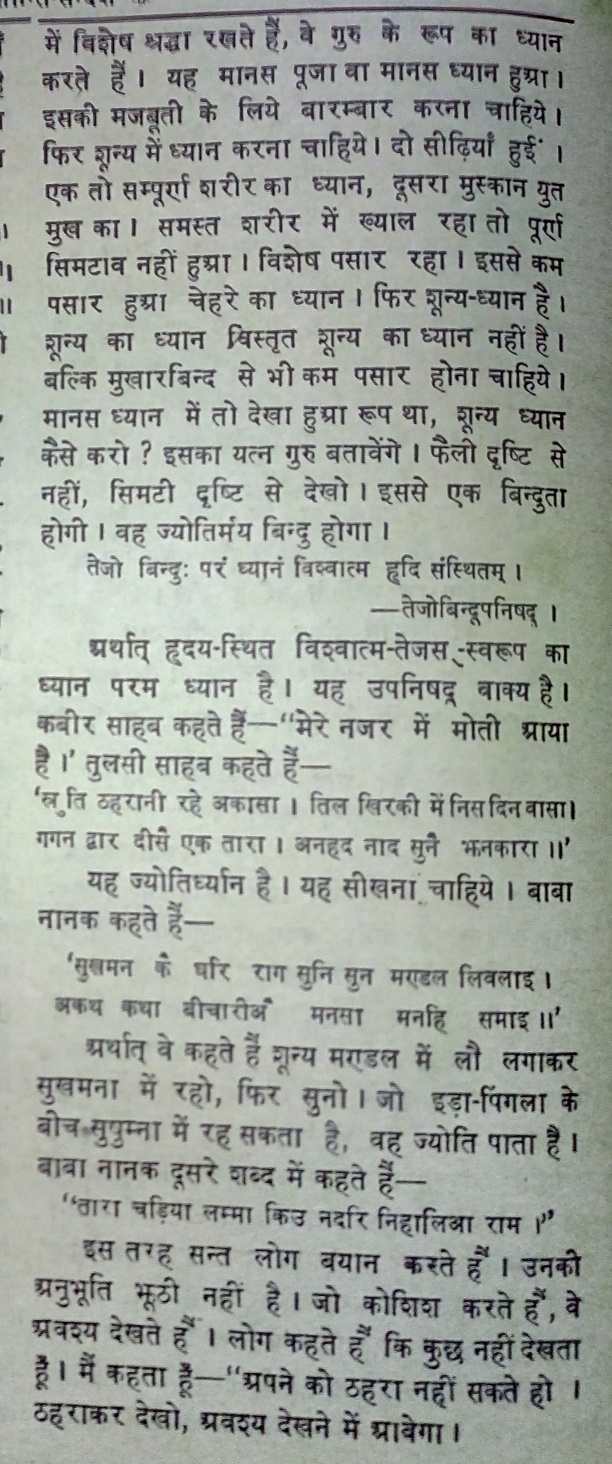 में विशेष श्रद्धा रखते हैं, वे गुरु के रूप का ध्यान
करते हैं । यह मानस पूजा वा मानस ध्यान हुआ ।
इसकी मजबूती के लिये बारम्बार करना चाहिये ।
फिर शून्य में ध्यान करना चाहिये । दो सीढ़ियाँ हुईं ।
एक तो सम्पूर्ण शरीर का ध्यान, दूसरा मुस्कान युत
मुख का । समस्त शरीर में ख्याल रहा तो पूर्ण
सिमटाव नहीं हुआ । विशेष पसार रहा । इससे कम
पसार हुआ चेहरे का ध्यान । फिर शून्य-ध्यान है ।
शून्य का ध्यान विस्तृत शून्य का ध्यान नहीं है ।
बल्कि मुखारबिन्द से भी कम पसार होना चाहिये ।
मानस ध्यान में तो देखा हुआ रूप था, शून्य ध्यान
कैसे करो ? इसका यत्न गुरु बतावेंगे । फैली दृष्टि से
नहीं, सिमटी दृष्टि से देखो । इससे एक बिन्दुता
होगी । वह ज्योतिर्मय बिन्दु होगा ।
तेजो बिन्दुः परं ध्यानं विश्वात्म हृदि संस्थितम् ।
—तेजोबिन्दूपनिषद् ।
अर्थात् हृदय-स्थित विश्वात्म-तेजस्-स्वरूप का
ध्यान परम ध्यान है । यह उपनिषद् वाक्य है ।
कबीर साहब कहते हैं—“मेरे नजर में मोती आया
है ।’ तुलसी साहब कहते हैं—
‘स्रुति ठहरानी रहे अकासा । तिल खिरकी में निस दिन वासा ।
गगन द्वार दीसै एक तारा । अनहद नाद सुनै झनकारा ॥’
यह ज्योतिर्ध्यान है । यह सीखना चाहिये । बाबा
नानक कहते हैं—
‘सुखमन कै घरि राग सुनि सुन मण्डल लिवलाइ ।
अकथ कथा बीचारीअै मनसा मनहि समाइ ॥’
अर्थात् वे कहते हैं शून्य मण्डल में लौ लगाकर
सुखमना में रहो, फिर सुनो । जो इड़ा-पिंगला के
बीच सुषुम्ना में रह सकता है, वह ज्योति पाता है ।
बाबा नानक दूसरे शब्द में कहते हैं—
“तारा चड़िया लम्मा किउ नदरि निहालिआ राम ।”
इस तरह सन्त लोग बयान करते हैं । उनकी
अनुभूति झूठी नहीं है । जो कोशिश करते हैं, वे
अवश्य देखते हैं । लोग कहते हैं कि कुछ नहीं देखता
हूँ । मैं कहता हूँ—“अपने को ठहरा नहीं सकते हो ।
ठहराकर देखो, अवश्य देखने में आवेगा ।